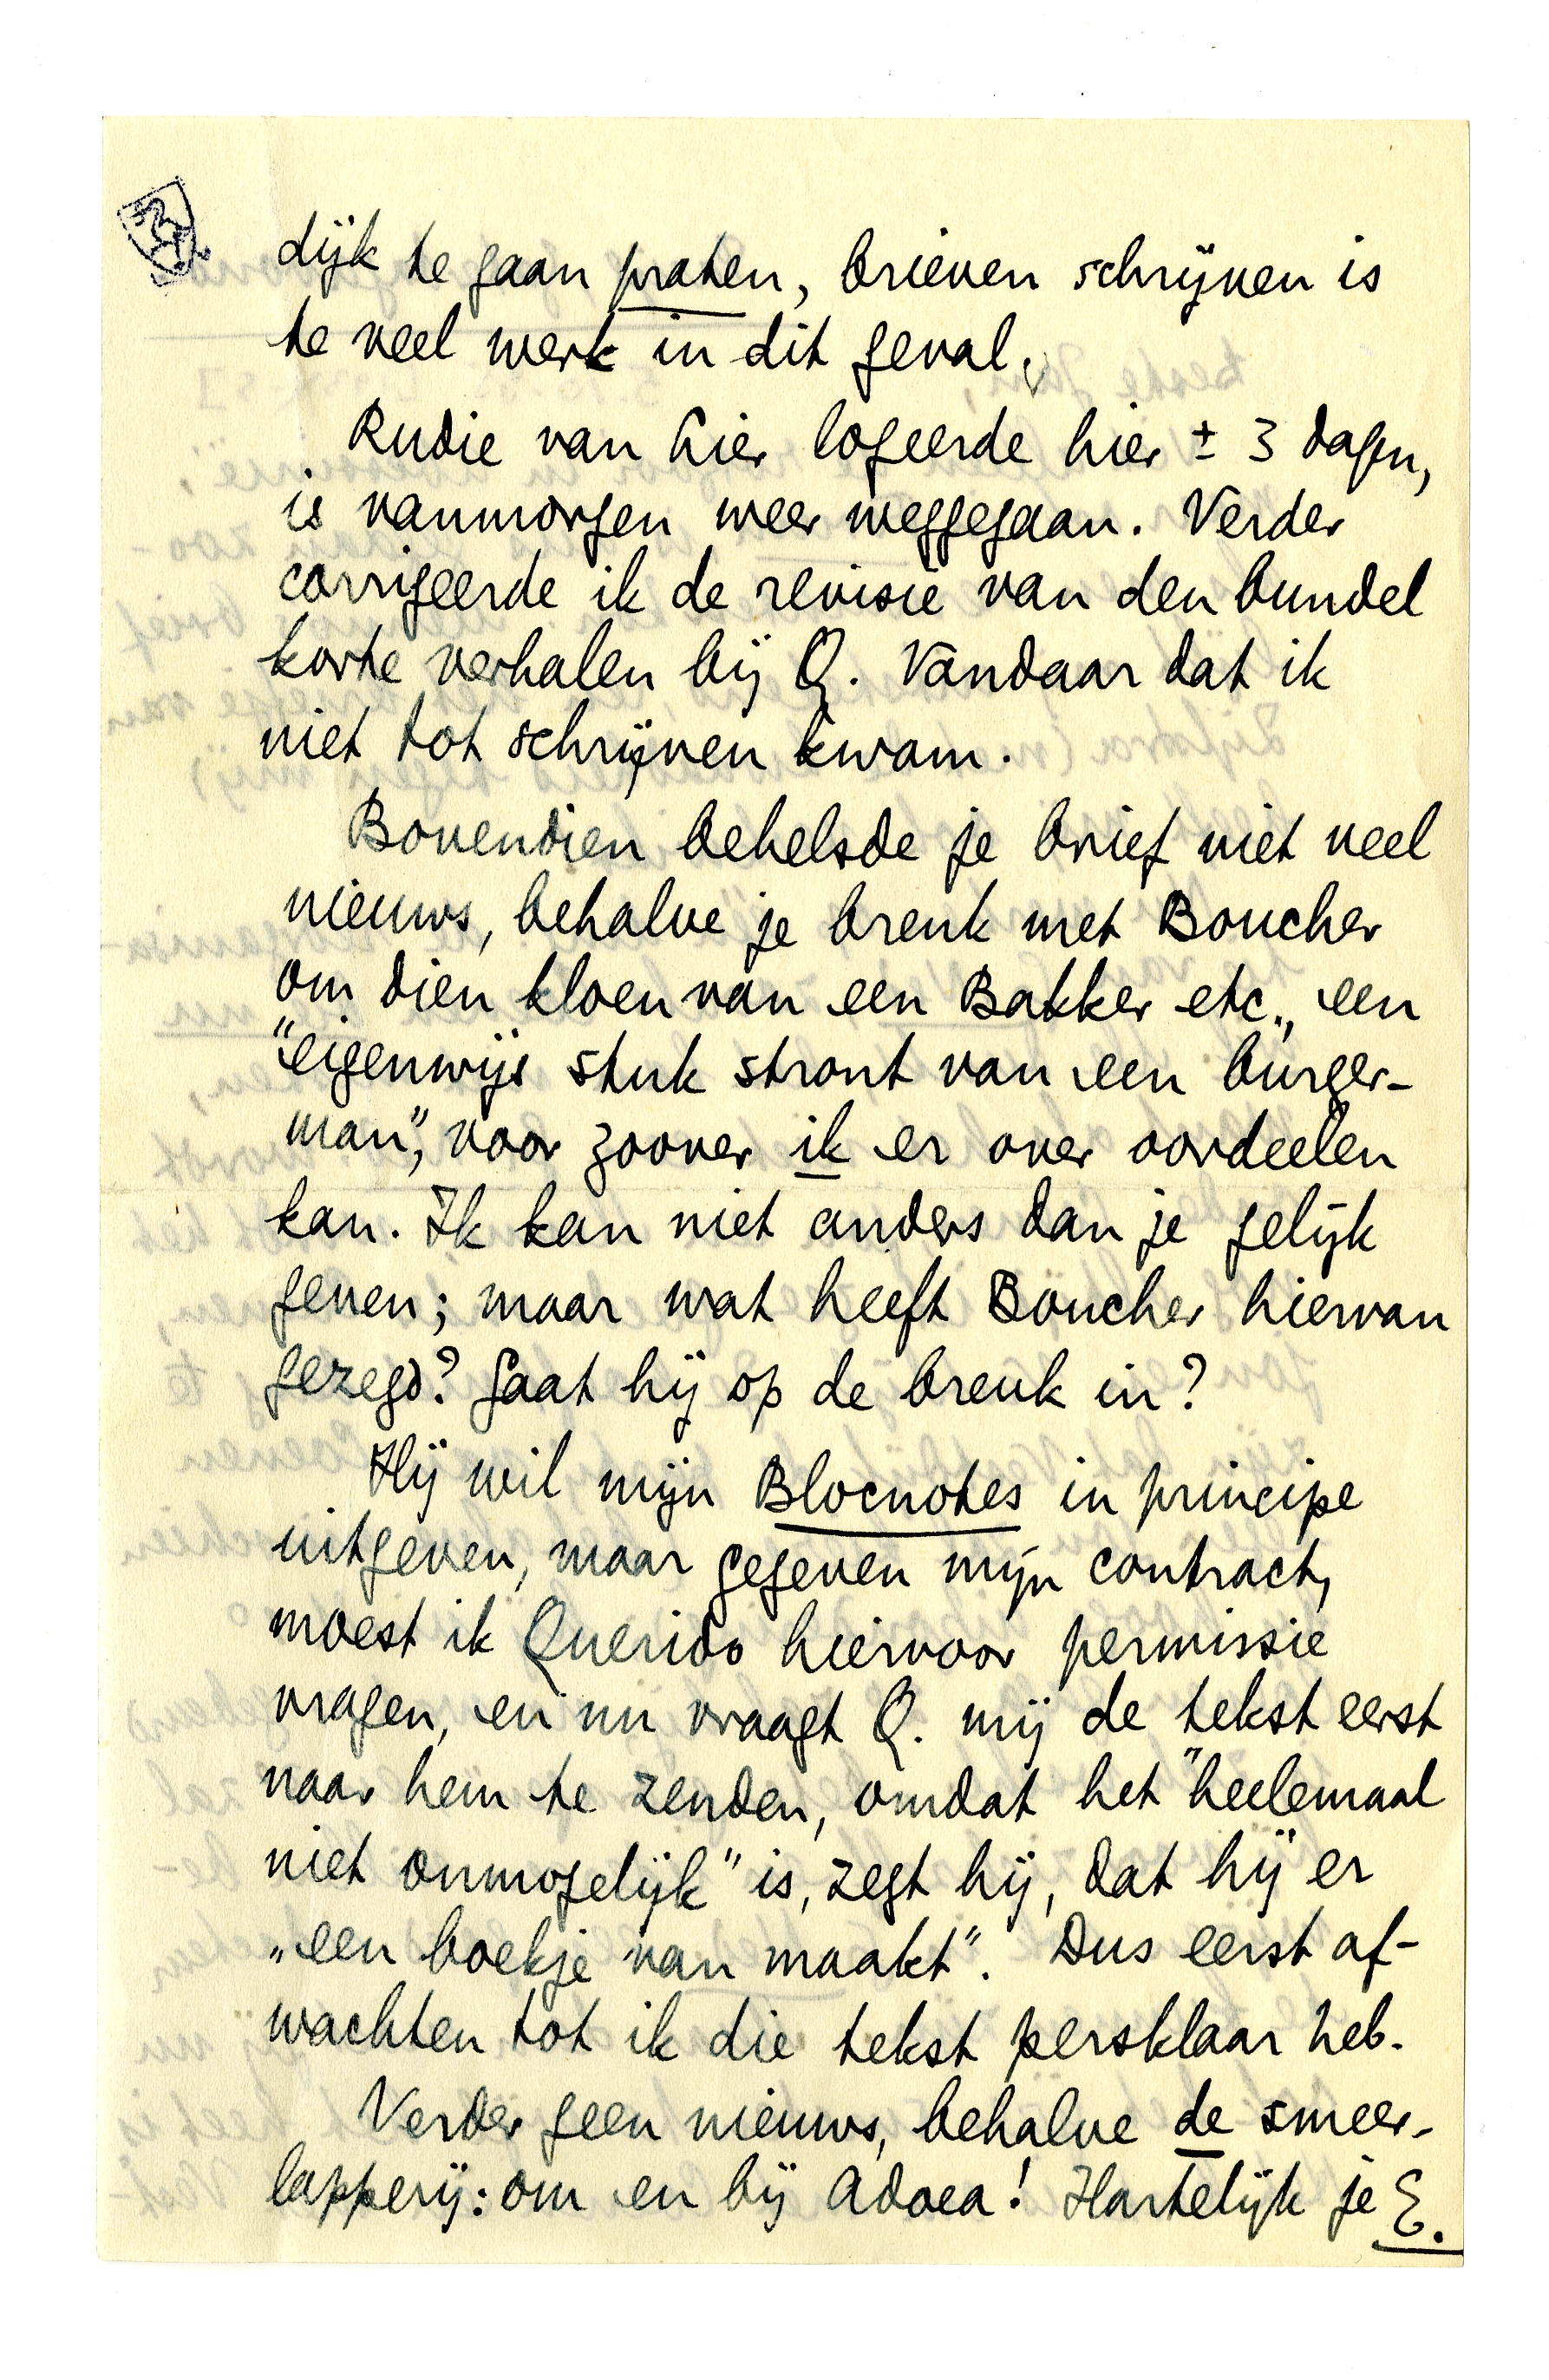 dijk te gaan praten, brieven schrijven is
te veel werk in dit geval.
Rudie van hier logeerde hier ± 3 dagen,
is vanmorgen weer weggegaan. Verder
corrigeerde ik de revisie van den bundel
korte verhalen bij Q. Vandaar dat ik
niet tot schrijven kwam.
Bovendien behelsde je brief niet veel
nieuws, behalve je breuk met Boucher
om dien kloen van een Bakker etc., een
"eigenwijs stuk stront van een burger-
man", voor zoover ik er over oordeelen
kan. Ik kan niet anders dan je gelijk
geven; maar wat heeft Boucher hiervan
gezegd? Gaat hij op de breuk in?
Hij wil mijn Blocnotes in principe
uitgeven, maar gegeven mijn contract,
moest ik Querido hiervoor permissie
vragen, en nu vraagt Q. mij de tekst eerst
naar hem te zenden, omdat het "heelemaal
niet onmogelijk" is, zegt hij, dat hij er
„een boekje van maakt". Dus eerst af-
wachten tot ik die tekst persklaar heb.
Verder geen nieuws, behalve de smeer-
lapperij: om en bij Adoea! Hartelijk je E.